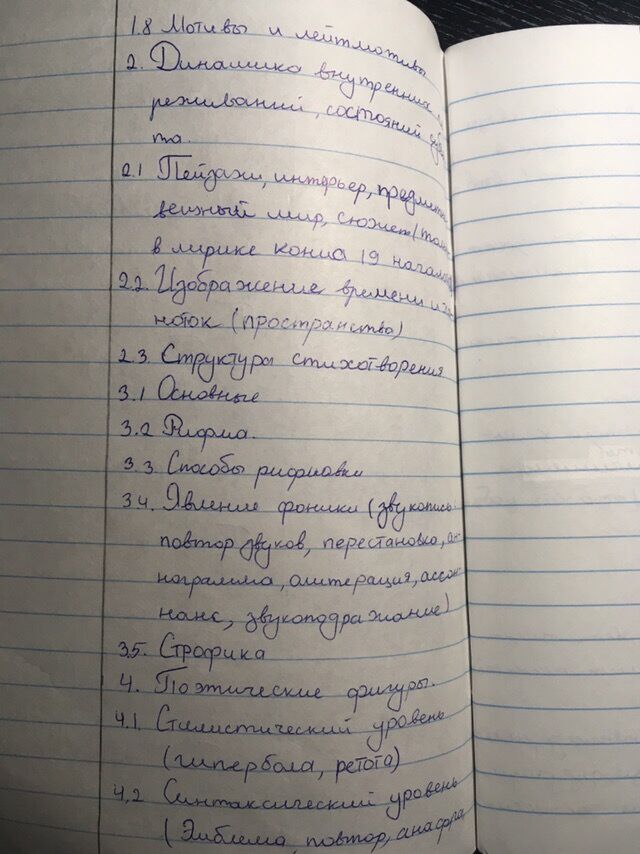 1.8 Мотивы и лейтмотивы
2. Динамика внутренних
реживаний, состояний
та.
2.1 Пейзажи, интерьер, предметн
вещный мир, сюжет
в лирике конца 19 начала
2.2. Изображение времени и
ноток (пространства)
2.3. Структура стихотворения
3.1 Основные
3.2 Рифма.
3.3. Способы рифмовки
3.4. Явление фоники (звукопись:
повтор звуков, перестановка, ан-
нограмма, алитерация, ассон-
нанс, звукоподражание)
3.5. Строфика
4. Поэтические фигуры.
4.1. Стилистический уровень
(гипербола, ретота)
4.2 Синтаксический уровень
(Эмблема, повтор, анафра